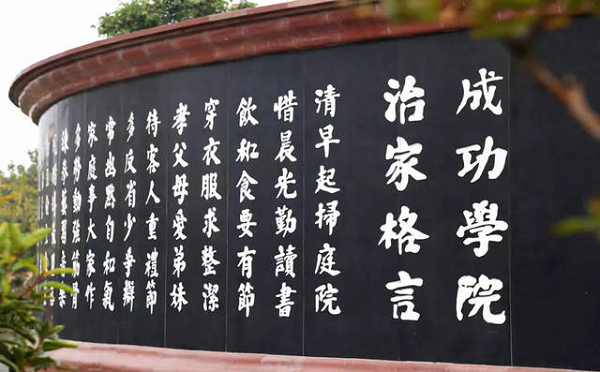 成功學院
治家格言
清早起掃庭院
惜晨光勤讀書
飲和食要有節
穿衣服求整潔
孝父母愛弟妹
待客人重禮節
多反省少爭辯
常幽默自和氣
家庭事大家作
多勞動強筋骨